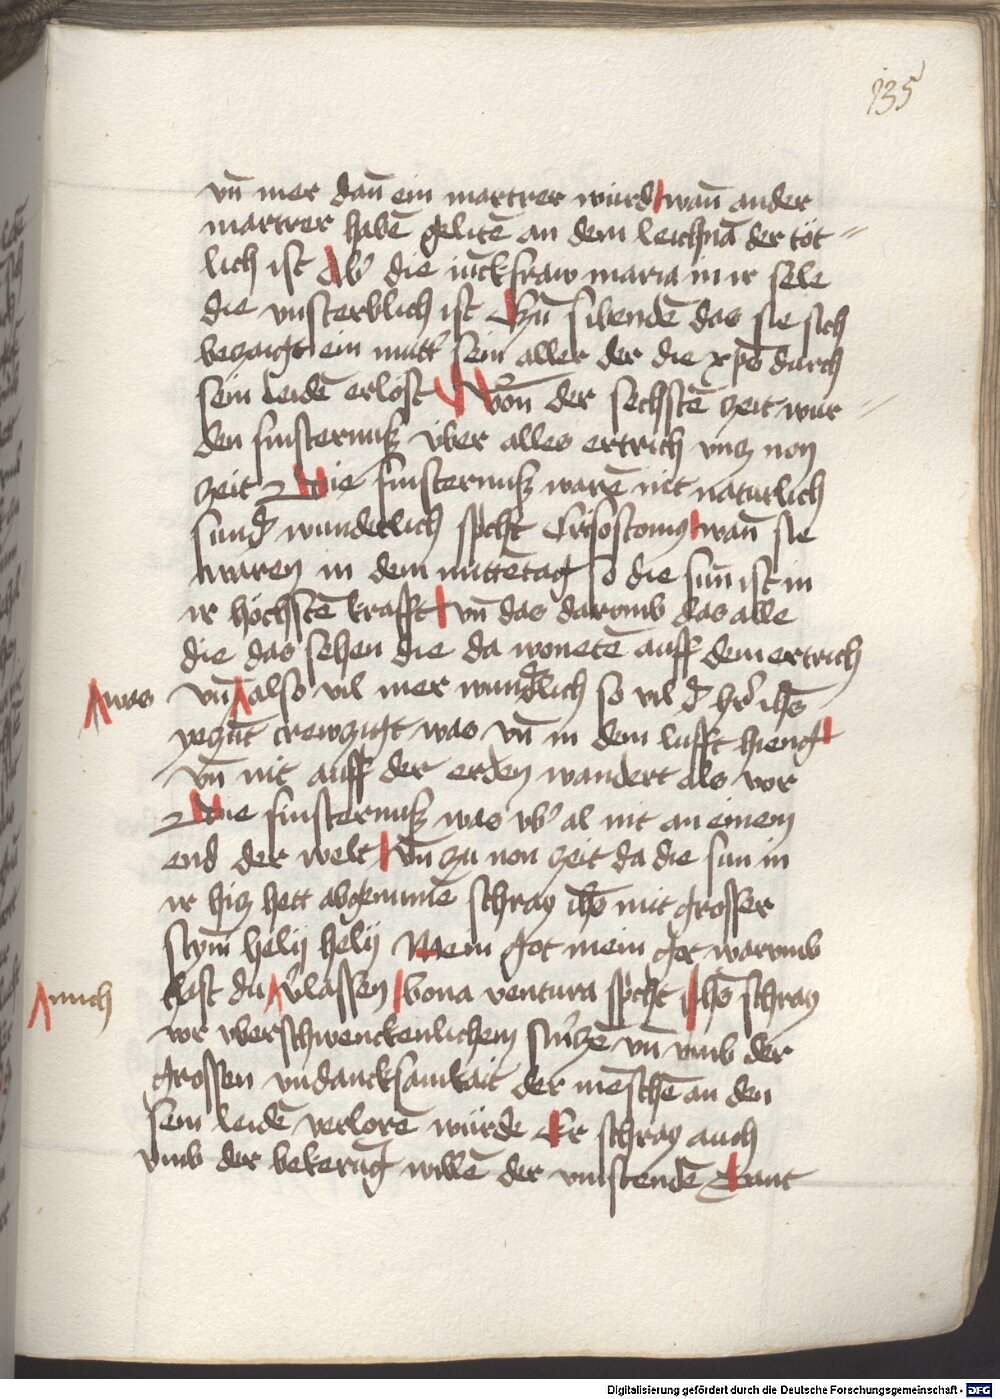 135
vn̄ mer dan̄ ein martrer wurd wan̄ ander
martrer habē gelitē an dem leichnā der töt
lich ist Ab' die iūckfraw maria in ir sele
die vnsterblich ist Zū sibendē das sie sich
bezaigt ein mutt' sein aller der die xp̄s durch
sein leidē erlost Von der sechstē zeit wur
den finsternuß vber alles ertrich vnz non
zeit Die finsternuß warē nit naturlich
sund' wunderlich sp̄cht Crisostomus wan̄ sie
waren in dem mittētag so die sun̄ ist in
ir höchstē krafft vn̄ das darvmb das alle
die das sehen die da wonetē auff dem ertrich
was vn̄ also vil mer wund'lich so vil d' h'r ih̄s
yezūt crewzigt was vn̄ in dem lufft hieng
vn̄ nit auff der erden wandert als vor
Die finsternuß was vb' al nit an einem
end der welt Vn̄ zu non zeit da die sun in
ir hiz hett abgenumē schray ih̄s mit grosser
stym̄ helÿ helÿ Mein got mein got warvmb
hast du v'lassen bona ventura sp̄cht ih̄s schray
mich
vor vberschwenckenlichem sm'zē vn̄ vmb der
grossen vndancksamkait der mēschē an den
sein leidē verlorē würde Er schray auch
vmb der bekerūg willē der vmstendē